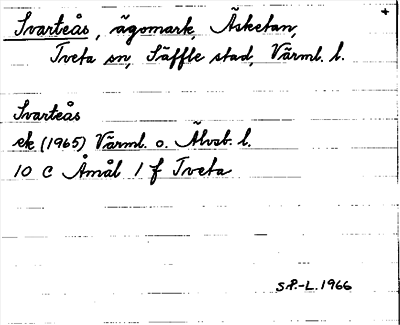 Svarteås, ägomark, Äsketan, +
Tveta sn, Säffle stad, Värml. l.
Svarteås
ek (1965) Värml. o. Älvsb. l.
10 C Åmål 1 f Tveta
S.P.-L. 1966